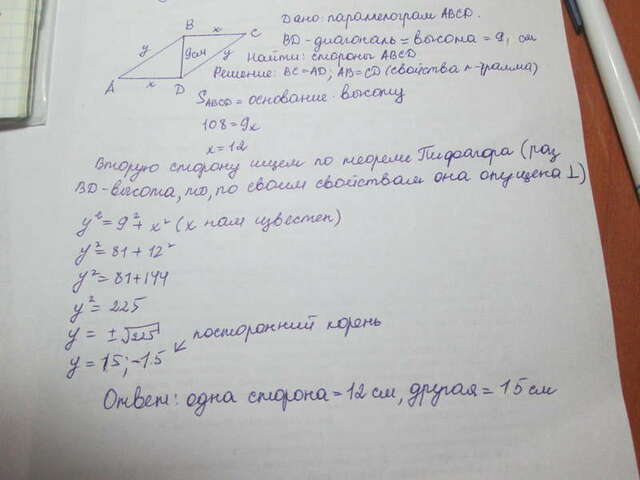 Дано: параллелограм ABCD.
BD - диагональ = высота = 9, см
Найти: стороны ABCD
Решение: BC = AD; AB = CD (свойства п-грамма)
B x C
y 9см y
A x D
S ABCD = основание · высоту
108 = 9x
x = 12
Вторую сторону ищем по теореме Пифагора (раз
BD - высота, то, по своим свойствам она опущена ⊥)
y² = 9² + x² (x нам известен)
y² = 81 + 12²
y² = 81 + 144
y² = 225
y = ±√225
y = 15; -15 ↙ посторонний корень
Ответ: одна сторона = 12 см, другая = 15 см